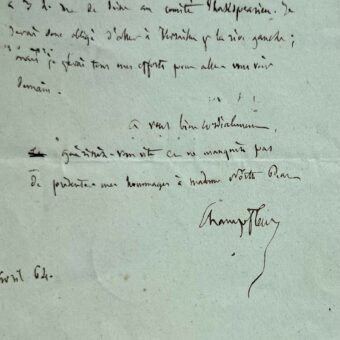 à 3 h. rue de Seine au comité Shakespearien. Je
serai donc obligé d'aller à Versailles par la rive gauche;
mais je ferai tous mes efforts pour aller vous voir
demain.
à vous bien cordialement,
guérissez-vous vite et ne manquez pas
de présenter mes hommages à madame
Champfleury
avril 64.